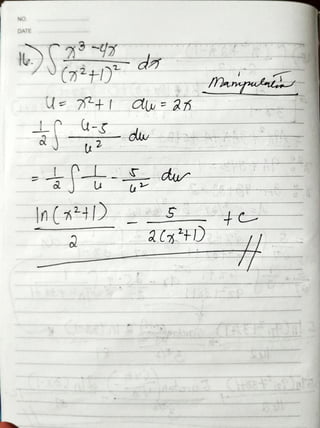 NO.
DATE
16.) ∫ x³ - 4x / (x²+1)² dx
Manipulation
u = x²+1 du = 2x
1/2 ∫ u-5 / u² du
= 1/2 ∫ 1/u - 5/u² du
ln(x²+1) / 2 - 5 / 2(x²+1) + c //